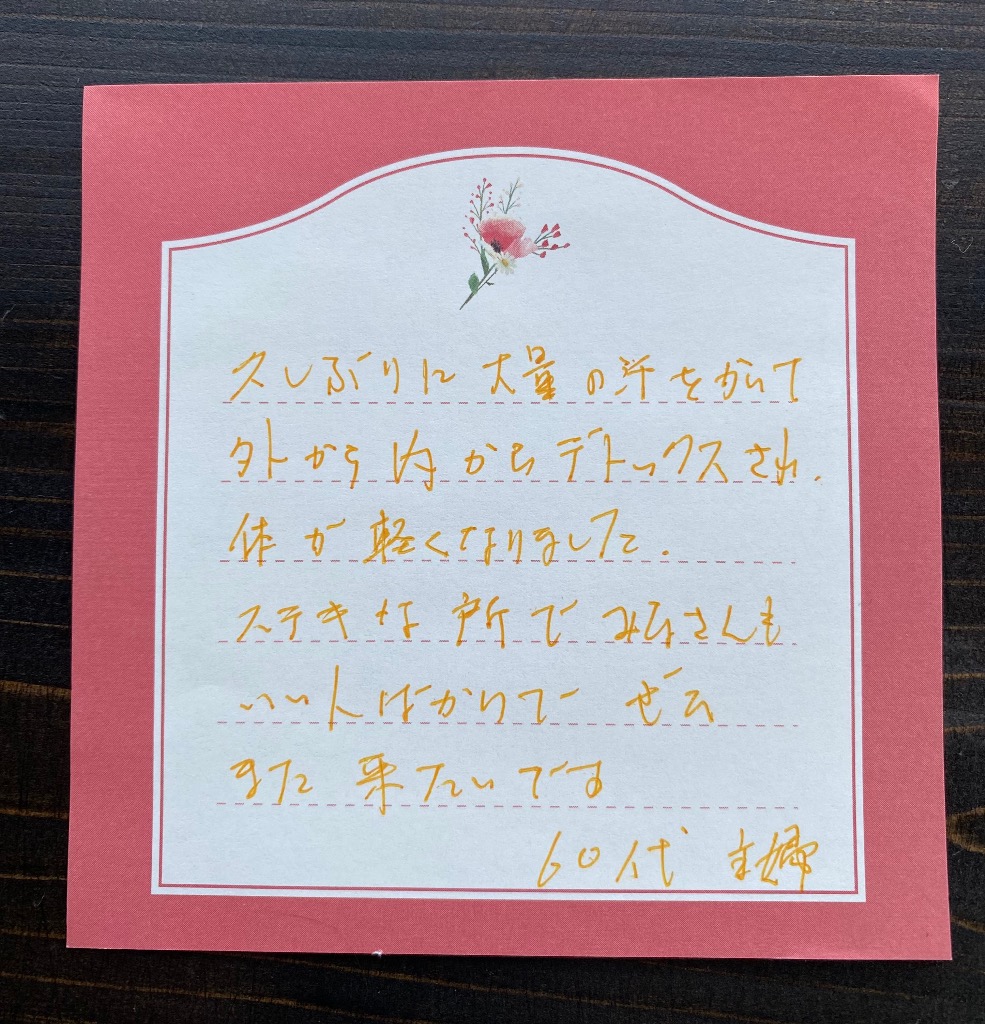 久しぶりに大量の汗をかいて
外から内からデトックスされ、
体が軽くなりました。
ステキな所でみなさんも
いい人ばかりで ぜひ
また来たいです
60代 主婦